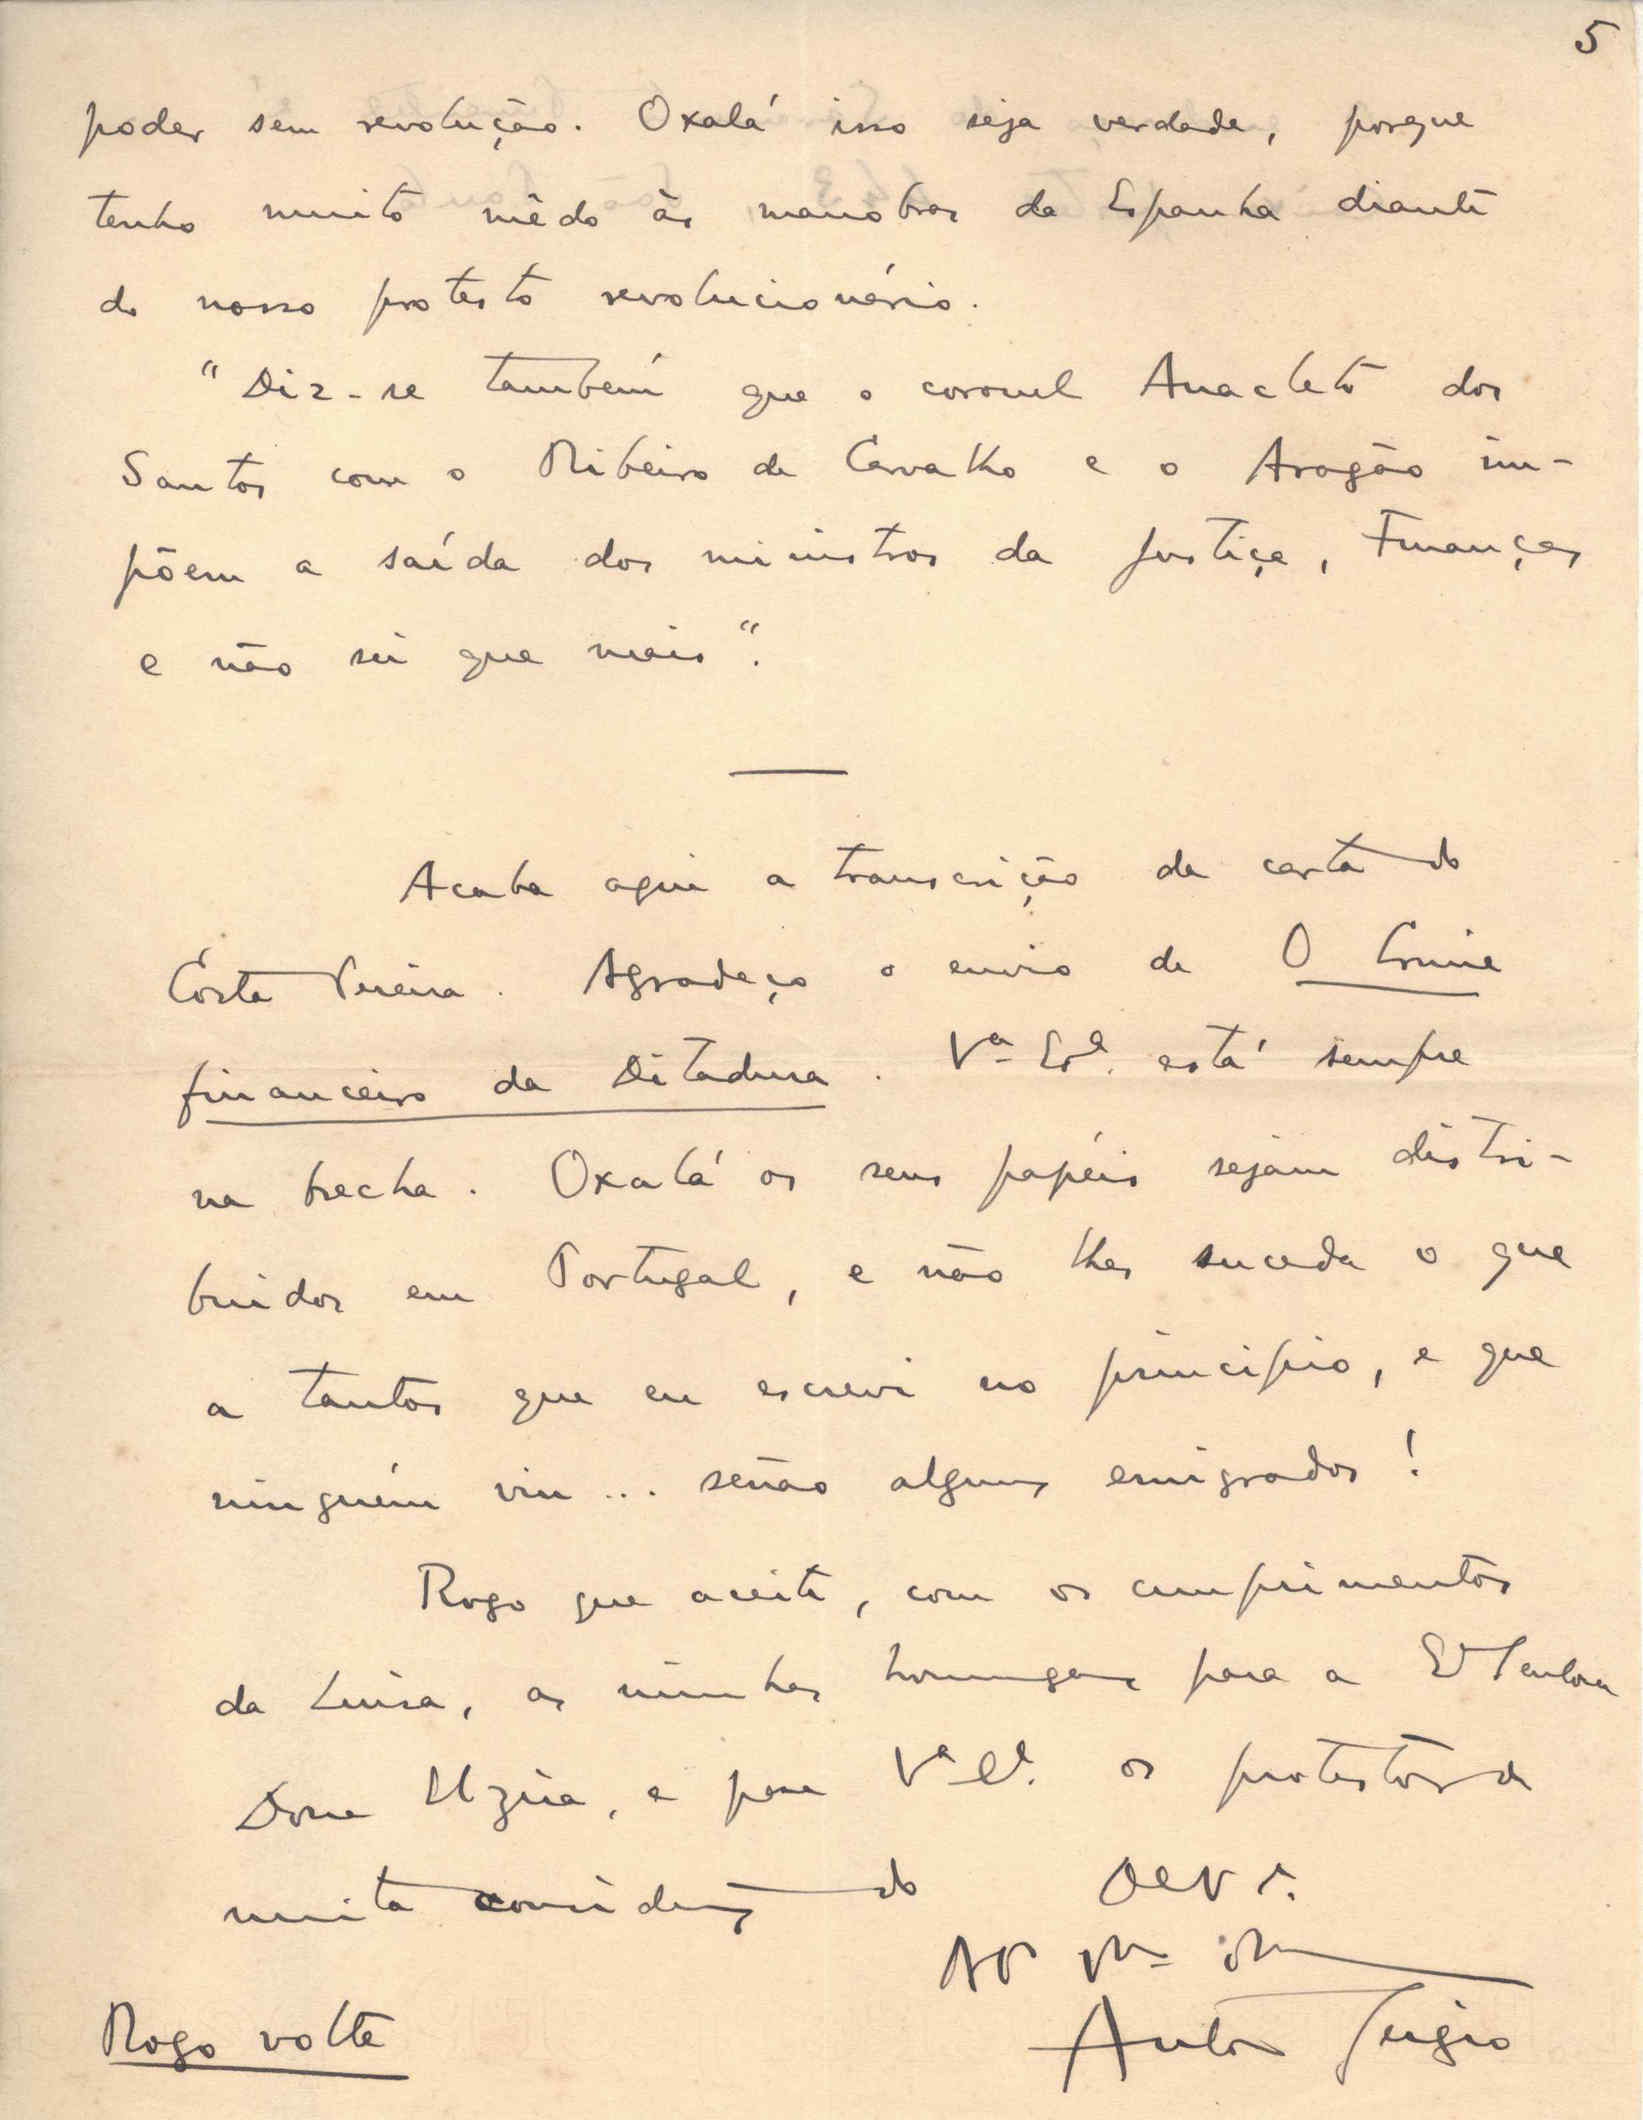 5
poder sem revolução. Oxalá isso seja verdade, porque
tenho muito mêdo às manobras da Espanha diante
do nosso protesto revolucionário.
"Diz-se também que o coronel Anacleto dos
Santos com o Ribeiro de Carvalho e o Aragão im-
põem a saída dos ministros da Justiça, Finanças
e não sei que mais".
Acaba aqui a transcrição da carta do
Costa Pereira. Agradeço o envio de O Crime
financeiro da Ditadura. Vª Exª. está sempre
na brecha. Oxalá os seus papéis sejam distri-
buidos em Portugal, e não lhes suceda o que
a tantos que eu escrevi no principio, e que
ninguém viu... senão alguns emigrados!
Rogo que aceite, com os cumprimentos
da Luisa, as minhas homenagens para a Srª Senhora
Dona Elzira, e para Vª Eª. os protestos de
muita consideração do
Antonio Sérgio
Rogo volte